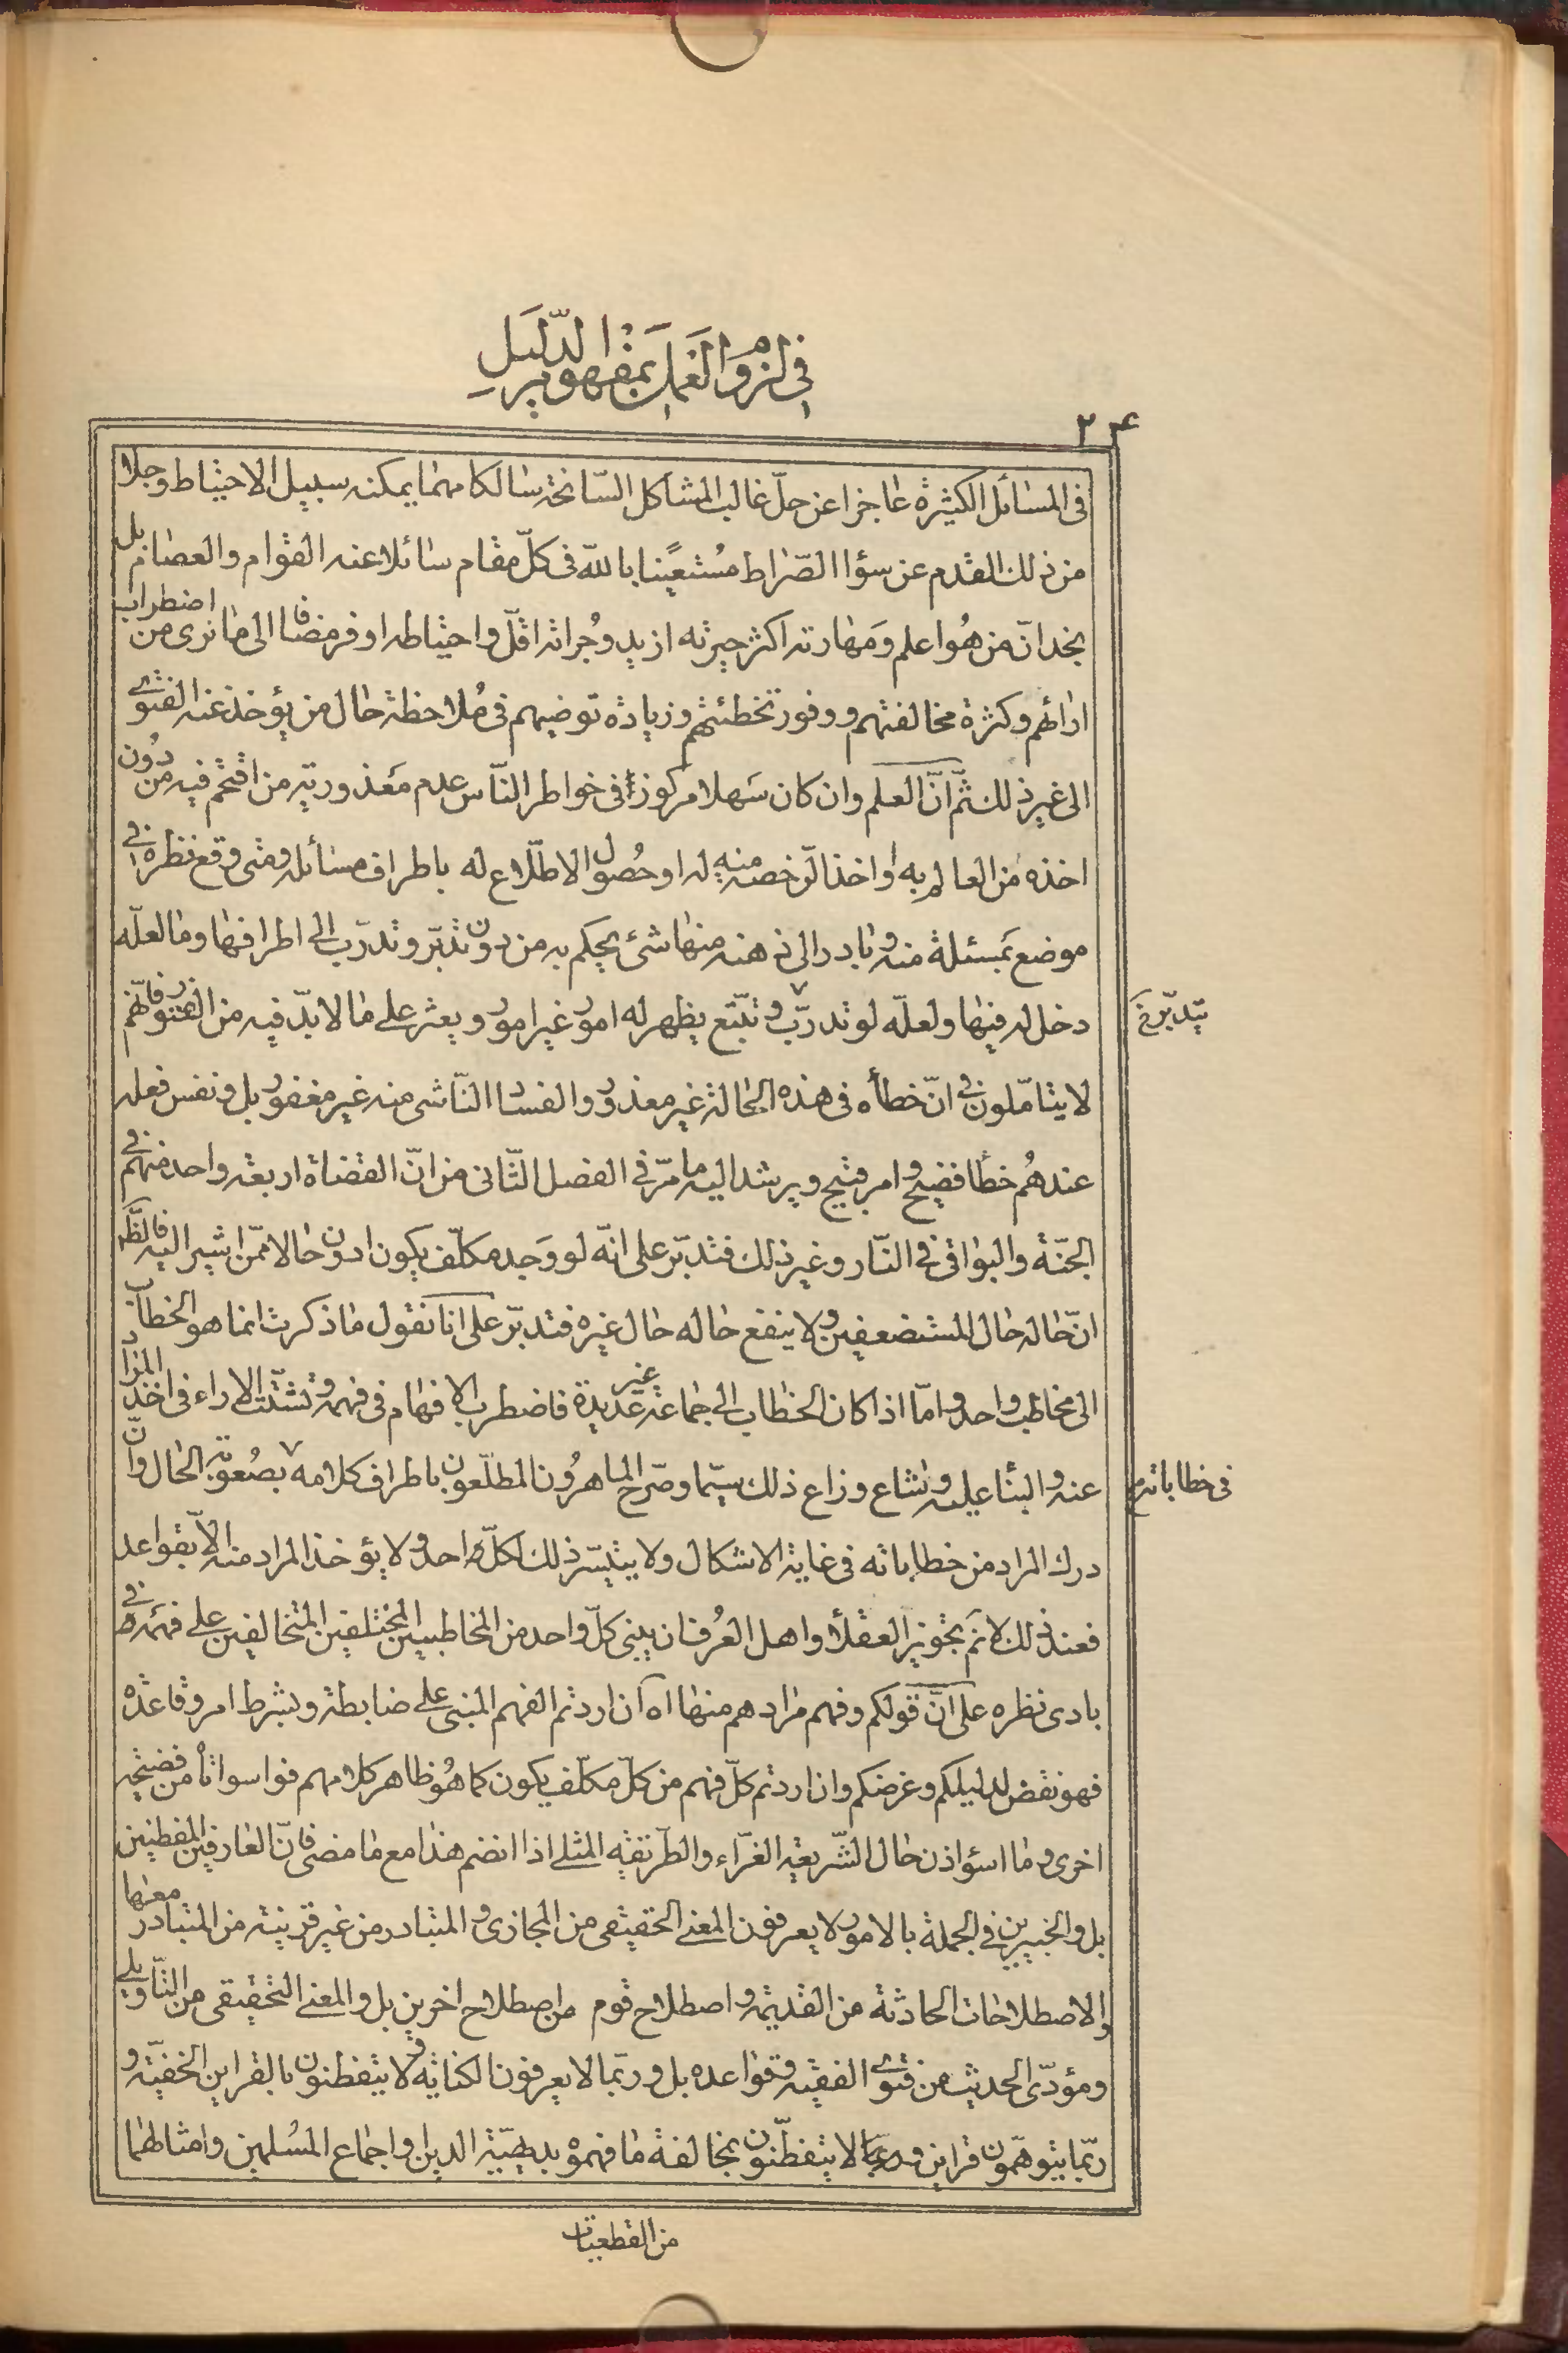 في لزوم العمل بمفهوم الدليل
٢٤
في المسائل الكثيرة عاجزا عن حلّ غالب المشاكل السّانحة سالكا مهما يمكنه سبيل الاحتياط وجلا
من ذلك القدم عن سواء الصّراط مُستعينًا بالله في كلّ مقام سائلا عنه القوام والعصام بل
نجد انّ من هُو اعلم ومَهارته اكثر حيرته ازيد وجُراته اقلّ واحتياطه اوفر مضافا الى ما نرى من اضطراب
ارائهم وكثرة مخالفتهم ووفور تخطئتهم وزيادة توضيهم في مُلاحظة حال من يؤخذ عنه الفتوى
الى غير ذلك ثمّ انّ العلم وان كان سَهلا مركوزا في خواطر النّاس عدم مَعذوريّة من اقتحم فيه من دُون
اخذه من العالم به واخذ الرّخصة منه له او حُصول الاطّلاع له باطراف مسائله ومتى وقع نظره في
موضع بمسئلة منه وتبادر الى ذهنه منها شئ يحكم به من دون تدبّر وتدرّب الى اطرافها وما لعلّه
دخل له فيها ولعلّه لو تدرّب وتتبّع يظهر له امور غير امور ويعثر على ما لا بدّ فيه من العثور فانّهم
يتدبّر خ
لا يتامّلون في انّ خطأه في هذه الحالة غير معذور والفساد النّاشى منه غير مغفور بل ونفس فعله
عندهُم خطأ فضيح وامر قبيح ويرشد اليه ما مرّ في الفصل الثّاني من انّ القضاة اربعة واحد منهم في
الجنّة والبواقي في النّار وغير ذلك فتدبّر على انّه لو وَجد مكلّف يكون ادون حالا ممّن اشير اليه فالظّ
انّ حاله حال المستضعفين ولا ينفع حاله حال غيره فتدبّر على انا نقول ما ذكرت انما هو الخطاب
الى مخاطب واحد واما اذا كان الخطاب الى جماعة غير عديدة فاضطرب الافهام في فهمه وتشتّت الاراء في اخذ المراد
عنه والبناء عليه وشاع وذاع ذلك سيّما وصرّح الماهرُون المطلّعون باطراف كلامه بصُعوبة الحال وانّ
في خطاباته خ
درك المراد من خطاباته في غاية الاشكال ولا يتيسّر ذلك لكلّ واحد ولا يؤخذ المراد منه الّا بقواعد
فعند ذلك لا نم تجويز العقلاء واهل العُرف ان يبنى كلّ واحد من المخاطبين المختلفين المتخالفين على فهمه في
بادى نظره على انّ قولكم وفهم مرادهم منها اه ان اردتم الفهم المبنى على ضابطة وبشرط امر وقاعدة
فهو نقض لدليلكم وغرضكم وان اردتم كلّ فهم من كلّ مكلّف يكون كما هُو ظاهر كلامهم فواسواتاْ من فضيحة
اخرى وما اسؤا ذن حال الشّريعة الغرّاء والطّريقة المثلى اذا انضم هذا مع ما مضى فانّ العارفين المفطنين
بل والخبيرين في الجملة بالامور لا يعرفون المعنى الحقيقى من المجازى والمتبادر من غير قرينة من المتبادر معها
والاصطلاحات الحادثة من القديمة واصطلاح قوم من اصطلاح اخرين بل والمعنى التحقيقى من التّاويلى
ومؤدّى الحديث من فتوى الفقيه وقواعده بل وربّما لا يعرفون الكناية ولا يتفطنون بالقراين الخفيّة و
ربّما يتوهّمون قراين وربّما لا يتفطّنون بمخالفة ما فهموه بديهيّة الدين واجماع المسُلمين وامثالهما
من القطعيات